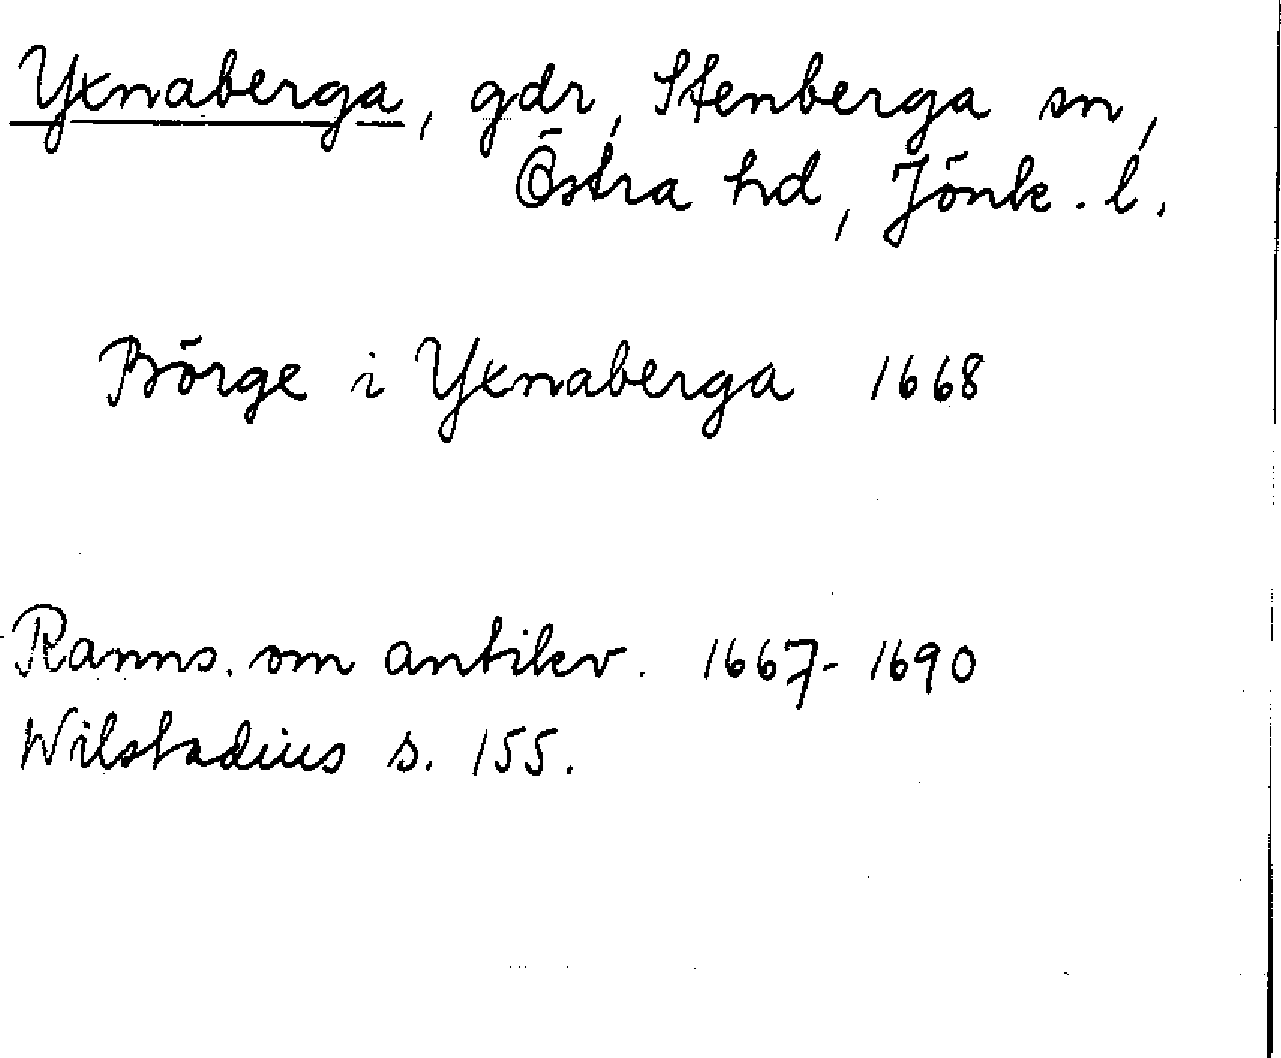 Yxnaberga, gdr, Stenberga sn,
Östra hd, Jönk. l.
Börge i Yxnaberga 1668
Ranns. om antikv. 1667-1690
Wilstadius s. 155.